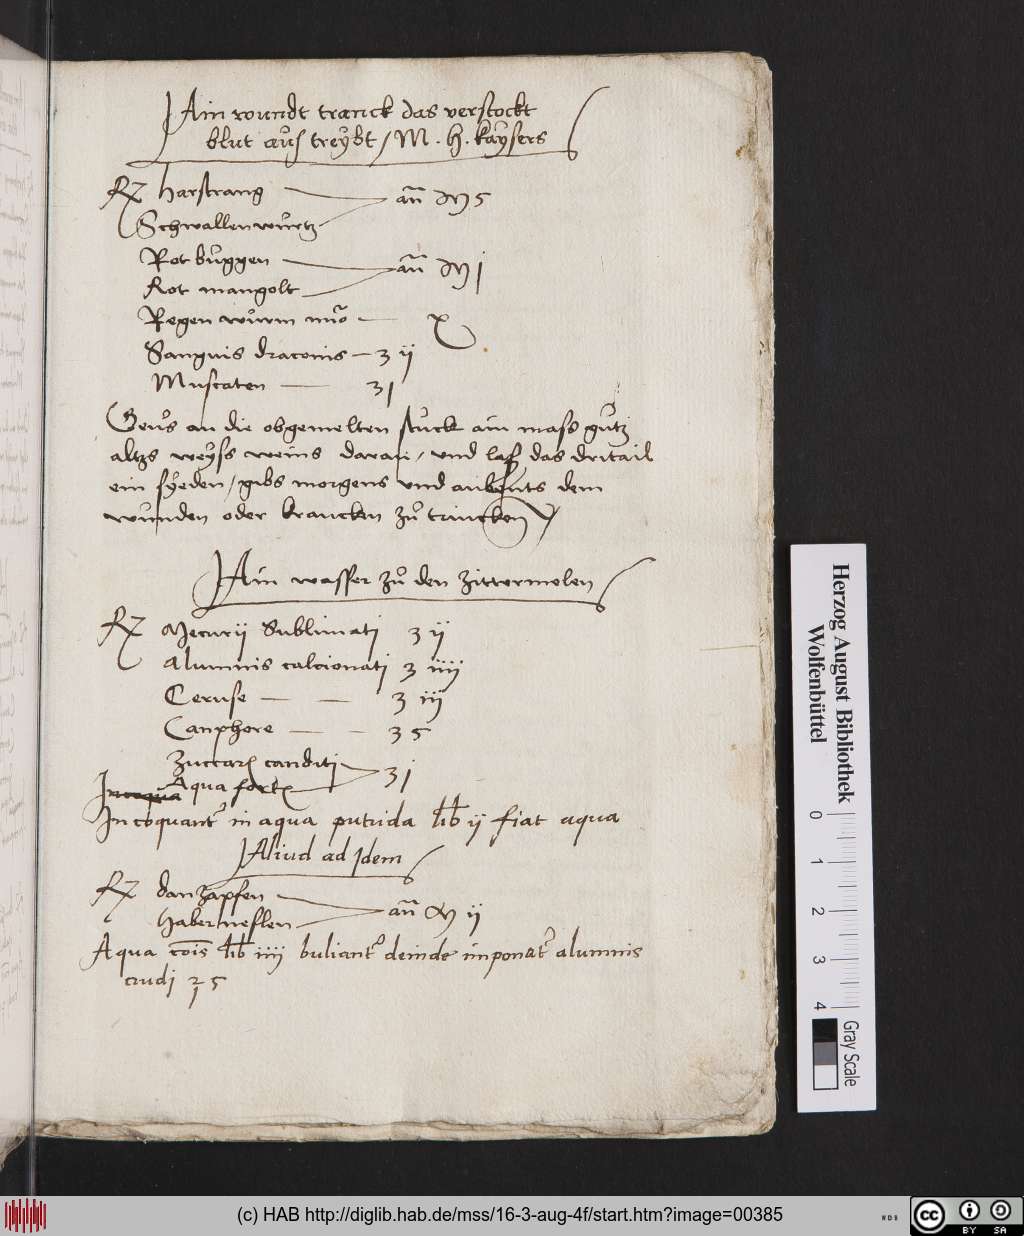 Ain wundt tranck das verstockt
blut aus treybt / M. H. Kaysers
Rx harstrang — an͂ M 5
Schwallenwurtz
Rot buggen — an͂ M j
Rot mangolt
Regen würm nũo — x
Sanguis draconis — ʒ ij
Muscaten — ʒ j
Geus an die obgemelten stuck ain mass gutz
altzs weyss weins daran / und las das dritail
ein syeden / gibs morgens und aubents dem
wunden oder krancken zů trincken
Ain wasser zů den Zittermelen
Rx Mecurij Sublimati ʒ ij
Aluminis calcionati ʒ iiij
Ceruse — — ʒ iij
Canphore — — ʒ 5
Zuccari canditj — ʒ j
Aqua fort
Incoquant' in aqua putrida lib ij fiat aqua
Aliud ad Idem
Rx danzapfen — an͂ M ij
habernesslen
Aqua cōis lib iiij buliant' deinde imponat' aluminis
crudj ℥ 5
Herzog August Bibliothek
Wolfenbüttel
0 1 2 3 4
Gray Scale
(c) HAB http://diglib.hab.de/mss/16-3-aug-4f/start.htm?image=00385
WDB
cc BY SA